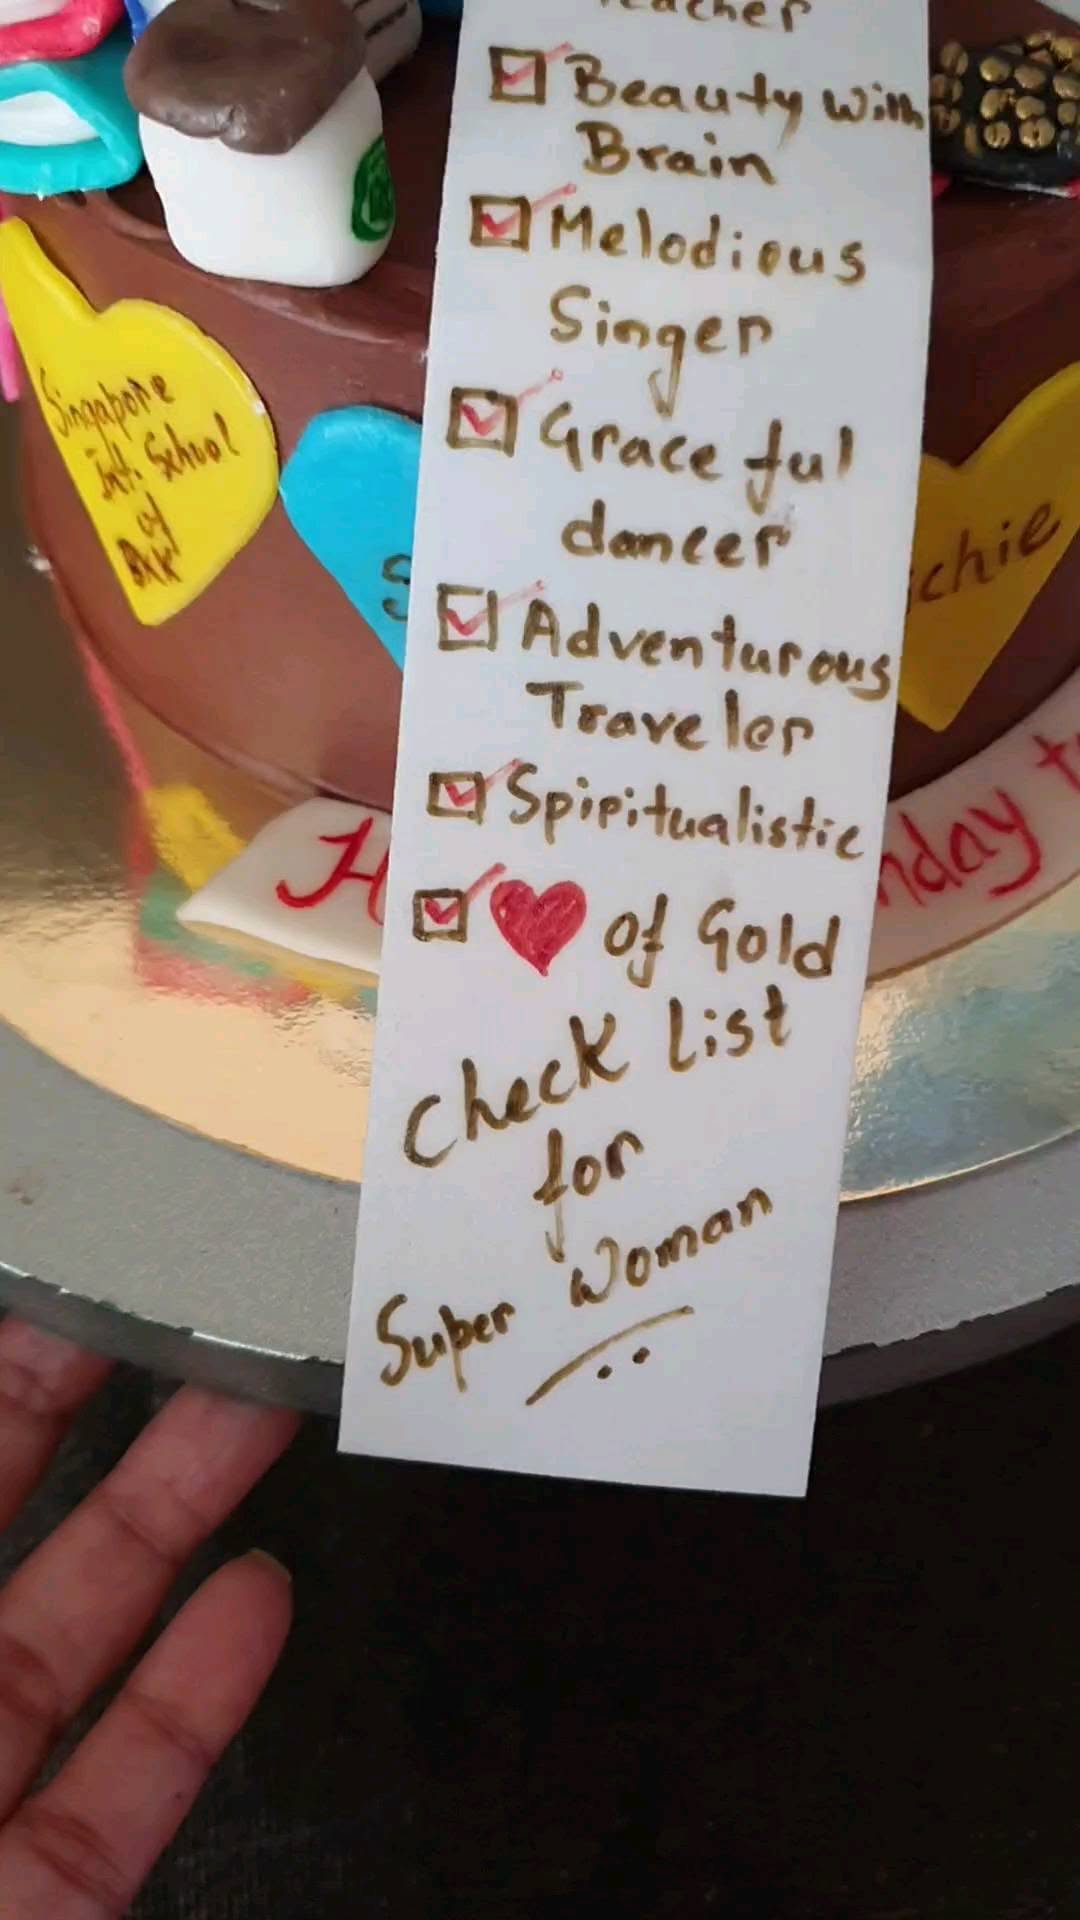 Teacher
Beauty with
Brain
Melodious
Singer
Graceful
dancer
Adventurous
Traveler
Spiritualistic
of Gold
Check List
for
Super Woman
Singapore
int. School
of
BKK